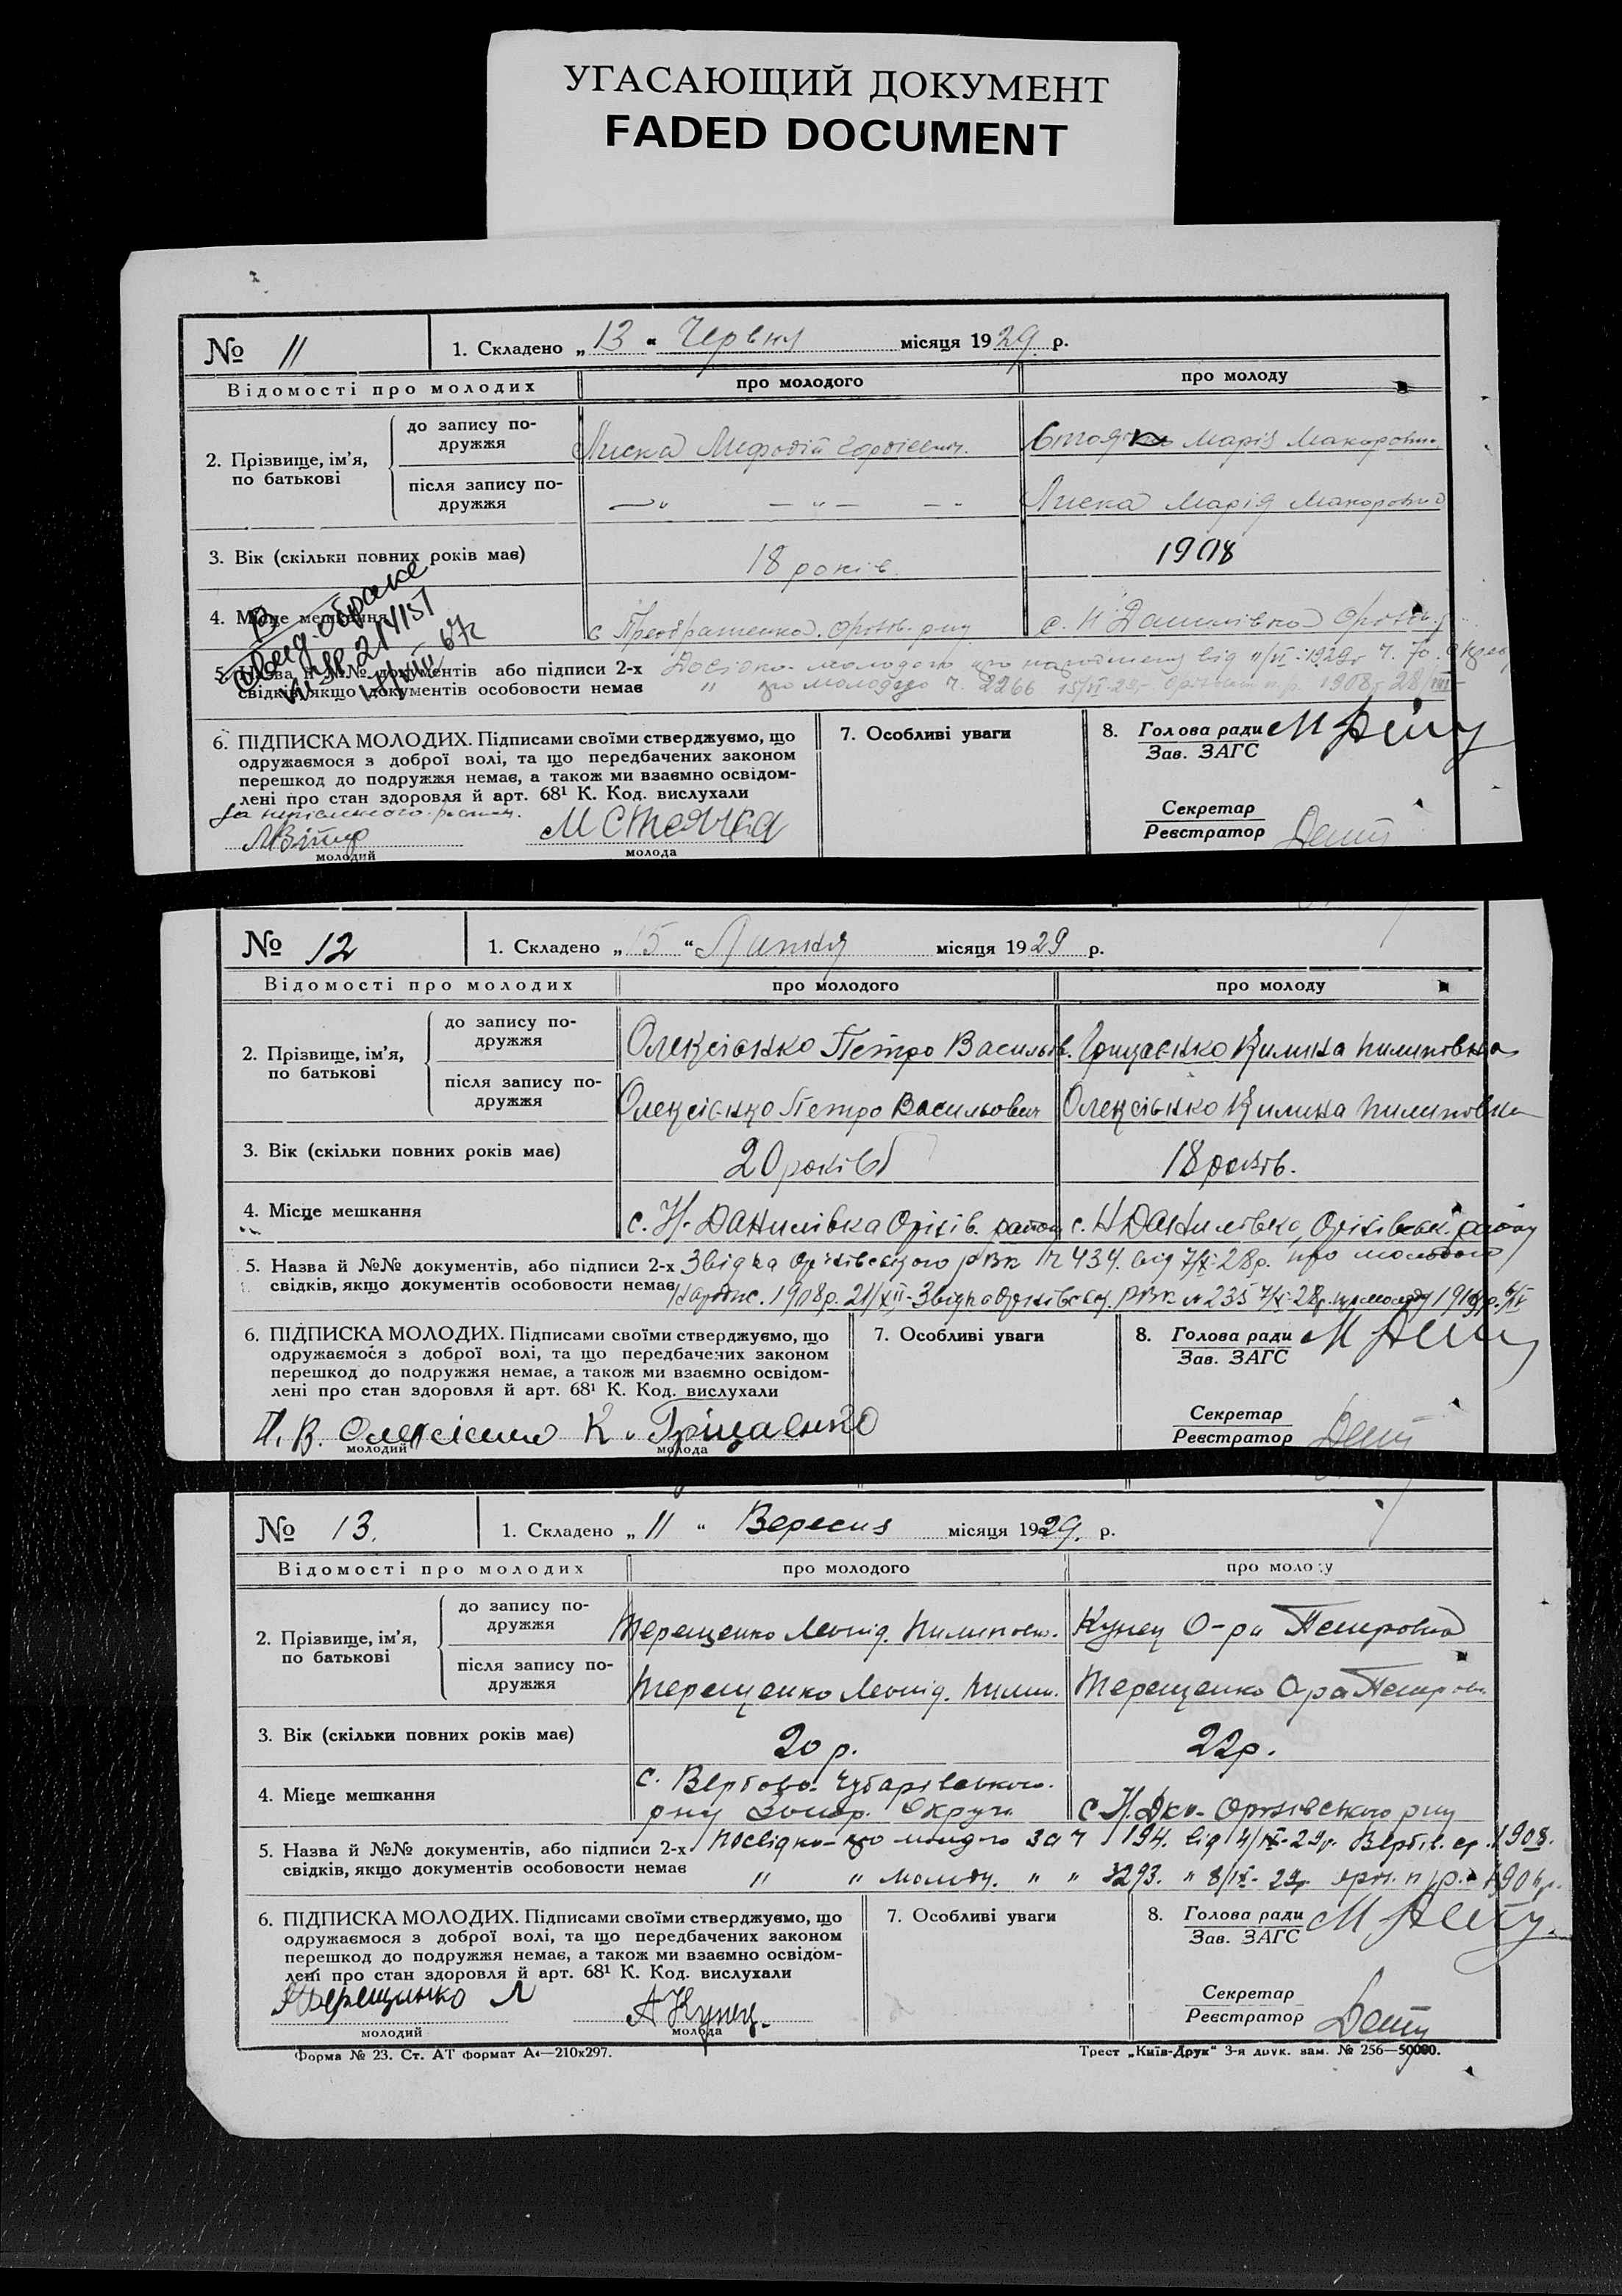 УГАСАЮЩИЙ ДОКУМЕНТ
FADED DOCUMENT
№ 11
1. Складено „ 13 “ Червня місяця 1929 р.
Відомості про молодих
про молодого
про молоду
2. Прізвище, ім'я, по батькові
до запису по-дружжя
Лиска Мефодій Гордієвич.
Марія Макаровн.
після запису по-дружжя
— „ — „ — — -
Лиска Марія Макаровна
3. Вік (скільки повних років має)
18 років
1908
4. Місце мешкання
с Преображенка. Оріхів. рну
с. Н Данилівка Оріхів.
В
свид. о браке
5. Назва й №№ документів або підписи 2-х
свідків, якщо документів особовости немає
молодого від 11/VI-1929р ч. 70.
„ про молоду ч. 2266 15/VI-29р 1908р 28/III
6. ПІДПИСКА МОЛОДИХ. Підписами своїми стверджуємо, що
одружаємося з доброї волі, та що передбачених законом
перешкод до подружжя немає, а також ми взаємно освідом-
лені про стан здоровля й арт. 68¹ К. Код. вислухали
За неписьменого
молодий
М Стоячка
молода
7. Особливі уваги
8. Голова ради
Зав. ЗАГС
Секретар
Реєстратор
№ 12
1. Складено „ 15 “ Липня місяця 1929 р.
Відомості про молодих
про молодого
про молоду
2. Прізвище, ім'я, по батькові
до запису по-дружжя
Олексієнко Петро Васильов.
Грицаєнко Килина Пилиповна
після запису по-дружжя
Олексієнко Петро Васильович
Олексієнко Килина Пилиповна
3. Вік (скільки повних років має)
20 років
18 років.
4. Місце мешкання
с. Н-Данилівка Оріхів. району
с. Н Данилівка, Оріхівськ. району
5. Назва й №№ документів, або підписи 2-х
свідків, якщо документів особовости немає
Звідка Оріхівського РВК № 434. від 7/X-28р. про молодого
Народж. 1908р. 21/XII-Звідка Оріхівськ. РВК № 235 7/X-28р. про молоду
6. ПІДПИСКА МОЛОДИХ. Підписами своїми стверджуємо, що
одружаємося з доброї волі, та що передбачених законом
перешкод до подружжя немає, а також ми взаємно освідом-
лені про стан здоровля й арт. 68¹ К. Код. вислухали
П. В. Олексієнко
молодий
К. Гріцаєнко
молода
7. Особливі уваги
8. Голова ради
Зав. ЗАГС
Секретар
Реєстратор
№ 13.
1. Складено „ 11 “ Вересня місяця 1929. р.
Відомості про молодих
про молодого
про молоду
2. Прізвище, ім'я, по батькові
до запису по-дружжя
Терещенко Леонід. Пилипов.
Кунец О-ра Петровна
після запису по-дружжя
Терещенко Леонід. Пилип.
Терещенко О-ра Петров.
3. Вік (скільки повних років має)
20 р.
22р.
4. Місце мешкання
с. Вербова. Чубарівського.
рну Запор. Округи
с Н. Дан- Оріхівського рну
5. Назва й №№ документів, або підписи 2-х
свідків, якщо документів особовости немає
Посвідка- про молодого за ч 194. від 4/IX-29р. Вербів. ср. 1908.
„ „ молоду. „ „ 3293. „ 8/IX-29р.
6. ПІДПИСКА МОЛОДИХ. Підписами своїми стверджуємо, що
одружаємося з доброї волі, та що передбачених законом
перешкод до подружжя немає, а також ми взаємно освідом-
лені про стан здоровля й арт. 68¹ К. Код. вислухали
Терещинко Л
молодий
А Кунец.
молода
7. Особливі уваги
8. Голова ради
Зав. ЗАГС
Секретар
Реєстратор
Форма № 23. Ст. АТ формат А4—210х297.
Трест „Київ-Друк“ 3-я друк. зам. № 256—50000.